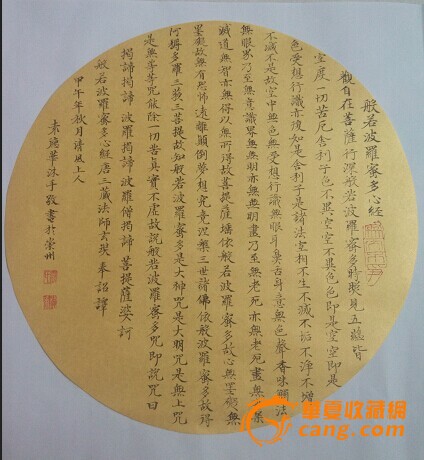 般若波羅蜜多心經
觀自在菩薩行深般若波羅蜜多時照見五蘊皆
空度一切苦厄舍利子色不異空空不異色色即是空空即是
色受想行識亦復如是舍利子是諸法空相不生不滅不垢不淨不增
不減不是故空中無色無受想行識無眼耳鼻舌身意無色聲香味觸法
無眼界乃至無意識界無無明亦無無明盡乃至無老死亦無老死盡無苦集
滅道無智亦無得以無所得故菩提薩埵依般若波羅蜜多故心無罣礙無
罣礙故無有恐怖遠離顛倒夢想究竟涅槃三世諸佛依般若波羅蜜多故得
阿耨多羅三藐三菩提故知般若波羅蜜多是大神咒是大明咒是無上咒
是無等等咒能除一切苦真實不虛故說般若波羅蜜多咒即說咒曰
揭諦揭諦 波羅揭諦 波羅僧揭諦 菩提薩婆訶
般若波羅蜜多心經唐三藏法師玄奘奉詔譯
甲午年秋月清風上人
華沐手敬書於崇州
華夏收藏網
cang.com